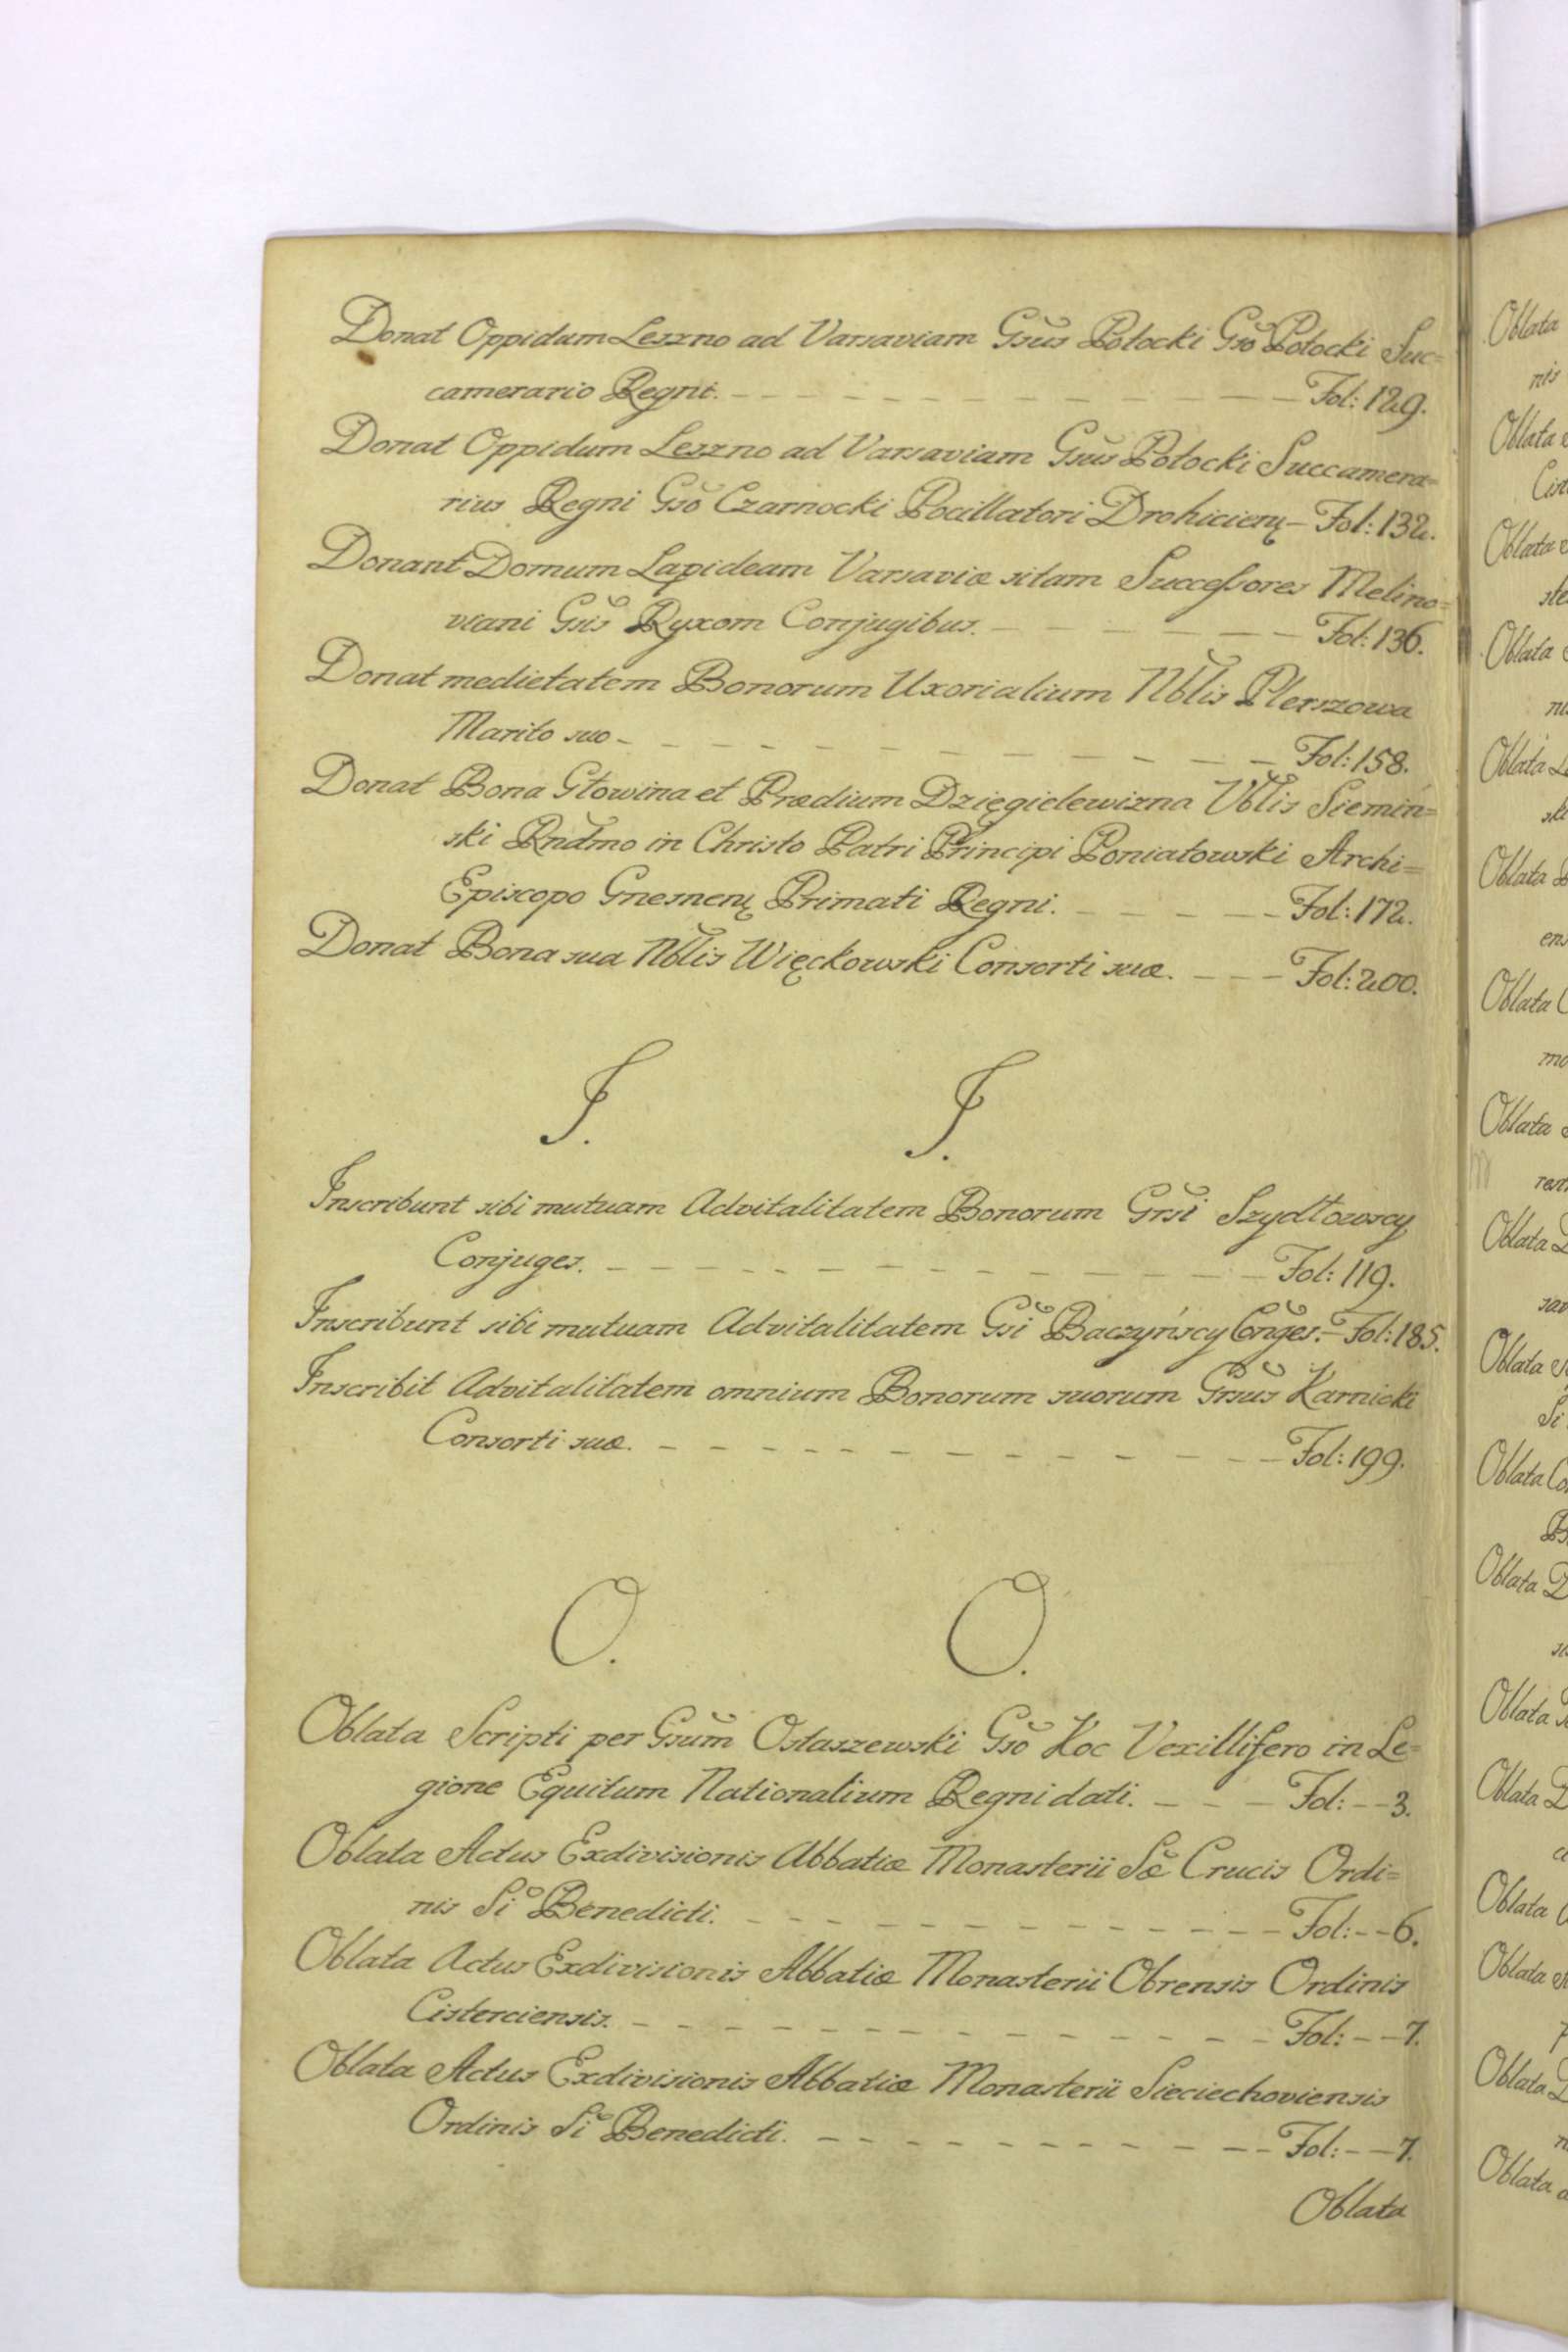 Donat Oppidum Leszno ad Varsaviam Gsus Potocki Gso Potocki Suc=
camerario Regni. Fol: 129.
Donat Oppidum Leszno ad Varsaviam Gsus Potocki Succamera=
rius Regni Gso Czarnocki Pocillatori Drohicien: Fol: 132.
Donant Domum Lapideam Varsaviæ sitam Successores Melino=
viani Gsis Ryxom Conjugibus. Fol: 136.
Donat medietatem Bonorum Uxorialium Nblis Plerszowa
Marito suo Fol: 158.
Donat Bona Głowina et Prædium Dzięgielewizna Vblis Siemiń=
ski Rndmo in Christo Patri Principi Poniatowski Archi=
Episcopo Gnesnen: Primati Regni. Fol: 172.
Donat Bona sua Nblis Więckowski Consorti suæ. Fol: 200.
I. I.
Inscribunt sibi mutuam Advitalitatem Bonorum Grsi Szydłowscy
Conjuges. Fol: 119.
Inscribunt sibi mutuam Advitalitatem Gsi Baczyńscy Conges. Fol: 185.
Inscribit Advitalitatem omnium Bonorum suorum Grsus Karnicki
Consorti suæ. Fol: 199.
O. O.
Oblata Scripti per Gsum Ostaszewski Gso Koc Vexillifero in Le=
gione Equitum Nationalium Regni dati. Fol: 3.
Oblata Actus Exdivisionis Abbatiæ Monasterii Sæ Crucis Ordi=
nis Si Benedicti. Fol: 6.
Oblata Actus Exdivisionis Abbatiæ Monasterii Obrensis Ordinis
Cisterciensis. Fol: 7.
Oblata Actus Exdivisionis Abbatiæ Monasterii Sieciechoviensis
Ordinis Si Benedicti. Fol: 7.
Oblata